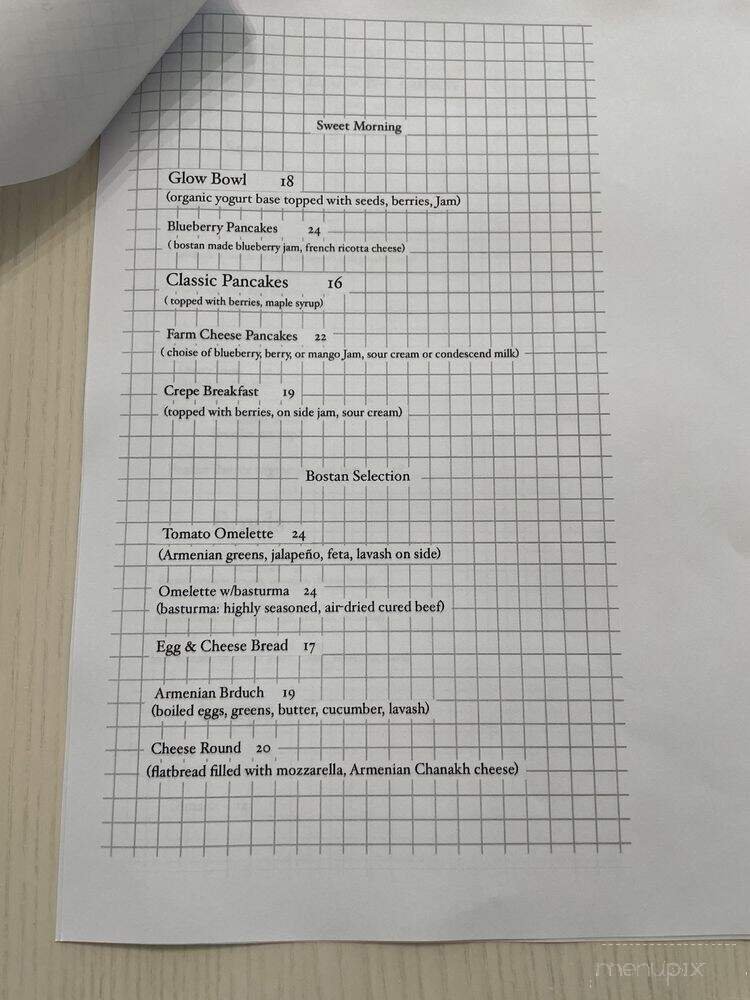 Sweet Morning
Glow Bowl 18
(organic yogurt base topped with seeds, berries, Jam)
Blueberry Pancakes 24
( bostan made blueberry jam, french ricotta cheese)
Classic Pancakes 16
( topped with berries, maple syrup)
Farm Cheese Pancakes 22
( choise of blueberry, berry, or mango Jam, sour cream or condescend milk)
Crepe Breakfast 19
(topped with berries, on side jam, sour cream)
Bostan Selection
Tomato Omelette 24
(Armenian greens, jalapeño, feta, lavash on side)
Omelette w/basturma 24
(basturma: highly seasoned, air-dried cured beef)
Egg & Cheese Bread 17
Armenian Brduch 19
(boiled eggs, greens, butter, cucumber, lavash)
Cheese Round 20
(flatbread filled with mozzarella, Armenian Chanakh cheese)
menupix